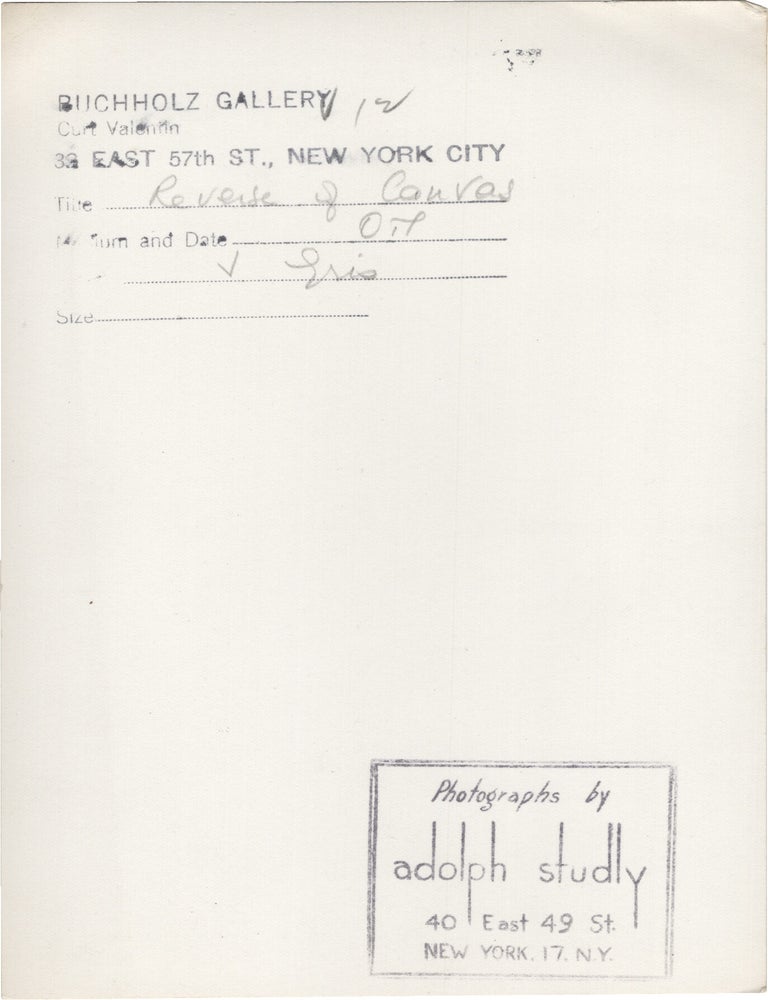 BUCHHOLZ GALLERY
Curt Valentin
32 EAST 57th ST., NEW YORK CITY
Title Reverse of Canvas
Medium and Date Oil
J Gris
Size
Photographs by
adolph studly
40 East 49 St.
NEW YORK. 17. N.Y.